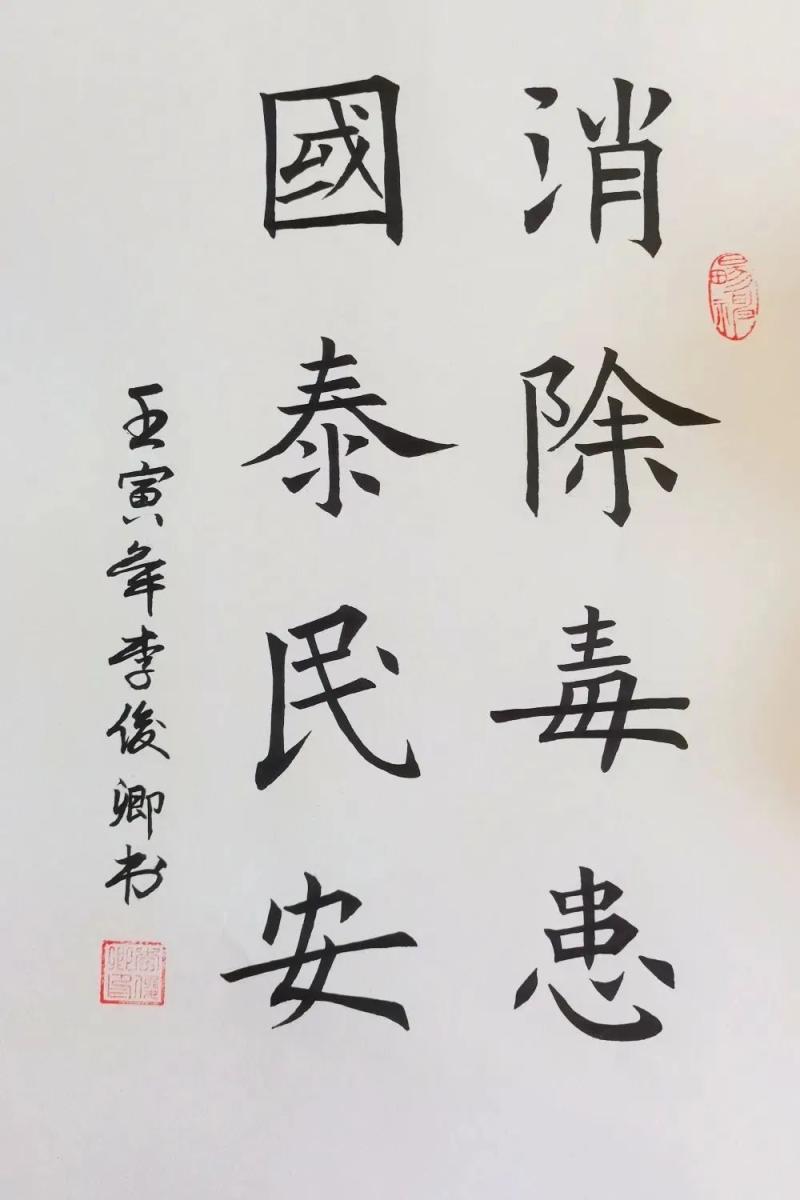 消除毒患
國泰民安
壬寅年李俊卿书